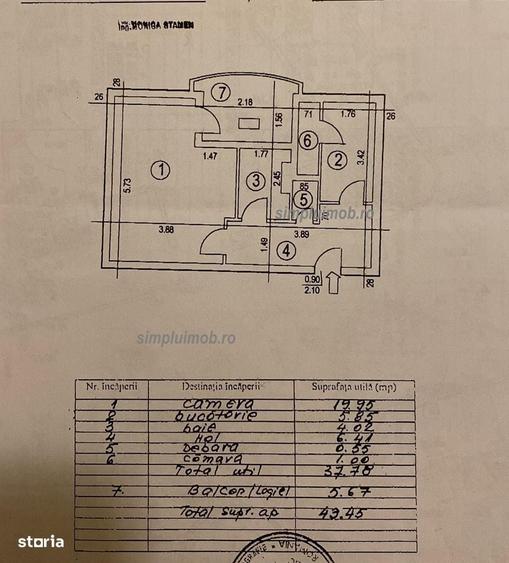 ing. MONICA STAMEN
28
26
7
2.18
1.56
71
1.76
26
6
1.47
1.77
3.42
1
2
5.73
3
2.45
85
5
simpluimob.ro
70
3.88
3.89
4
1.49
0.90
2.10
28
simpluimob.ro
Nr. încăperii Destinaţia încăperii Suprafaţa utilă (mp)
1 camera 19.95
2 bucotorie 5.85
3 baie 4.02
4 Hol 6.41
5 Debara 0.55
6 Cămara 1.00
Total util 37.78
7. Balcon/Logie 5.67
Total supr. ap 43.45
storia
ROMANIA